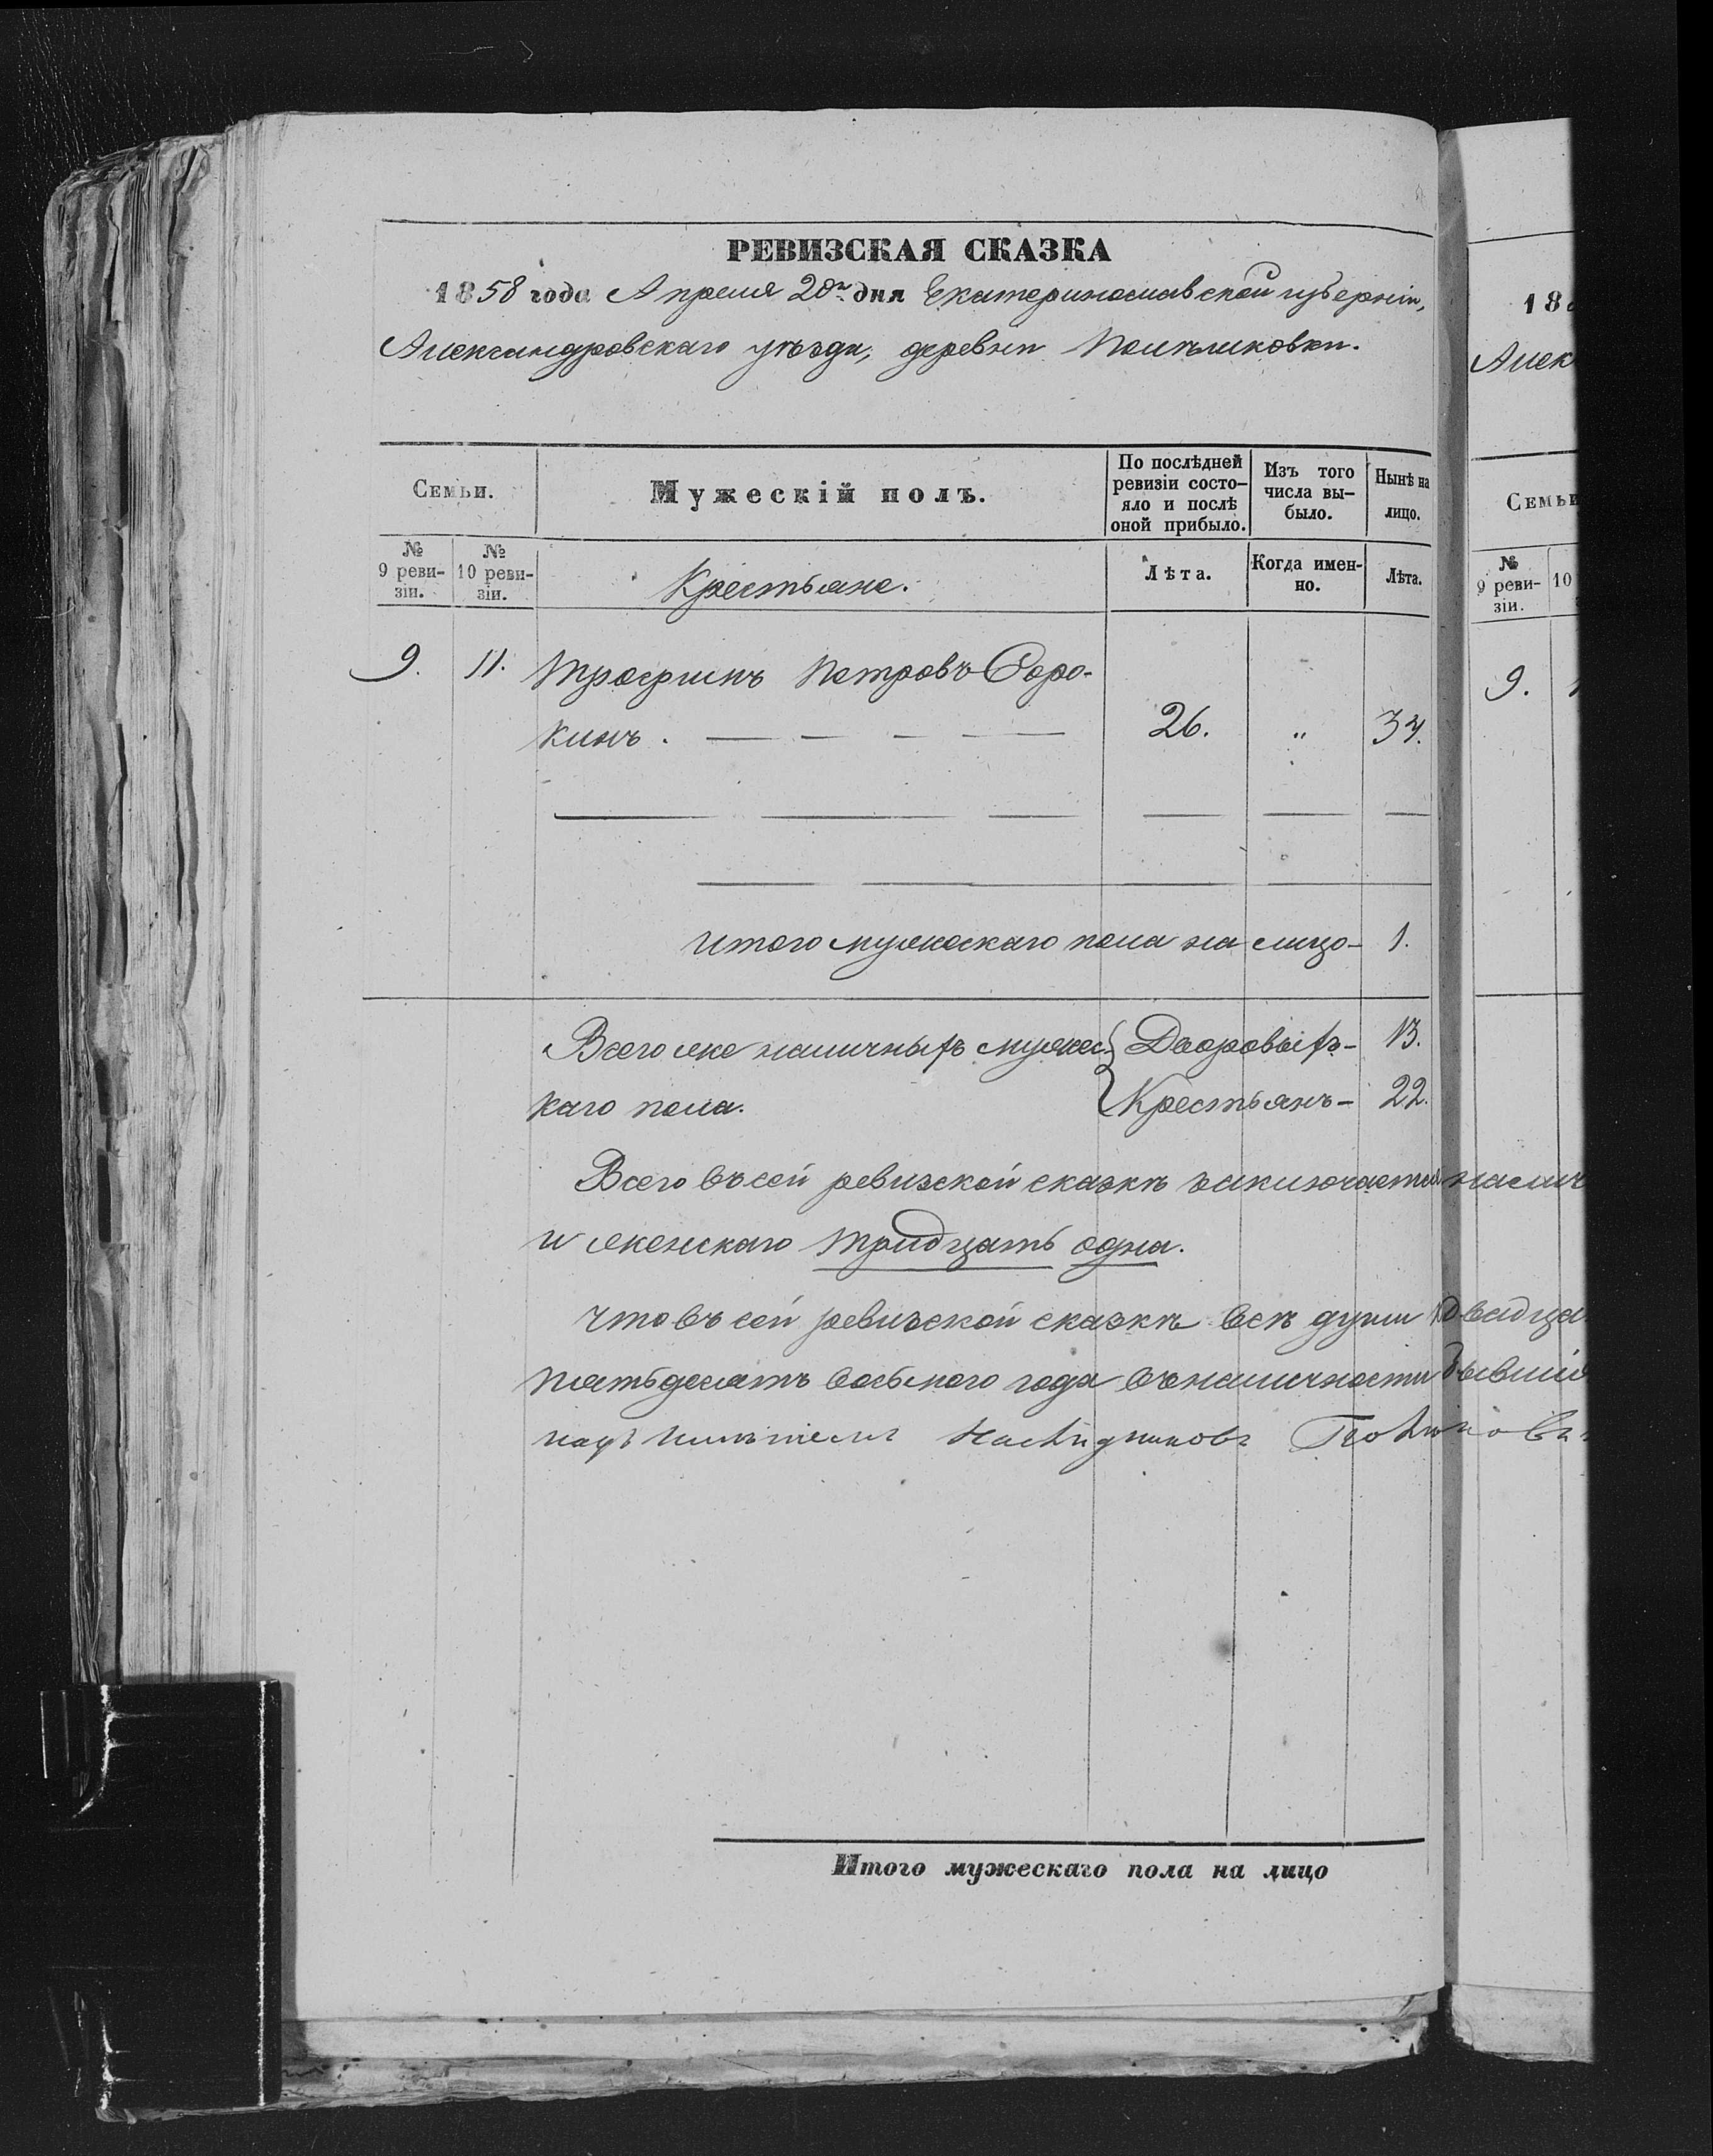 РЕВИЗСКАЯ СКАЗКА
1858 года Апреля 20го дня Екатеринославской губерніи,
Александровскаго уѣзда, деревни
Семьи.
Мужескій полъ.
По послѣдней ревизіи состо-яло и послѣ оной прибыло.
Изъ того числа вы-было.
Нынѣ на лицо.
№ 9 реви-зіи.
№ 10 реви-зіи.
Крестьяне.
Лѣта.
Когда имен-но.
Лѣта.
9. 11. Трофимъ Петровъ Соро-
кинъ. 26. " 34.
Итого мужескаго пола на лицо- 1.
Всего же наличныхъ мужес- Дворовыхъ- 13.
каго пола. Крестьянъ- 22.
Всего въ сей ревизской сказкѣ заключается налич
и женскаго тридцать одна.
Что въ сей ревизской сказкѣ всѣ души двадца
пятьдесятъ восьмого года въ наличности бывшія
наслѣдниковъ
Итого мужескаго пола на лицо
18
Алек
Семьи
№ 9 реви-зіи.
10
9.